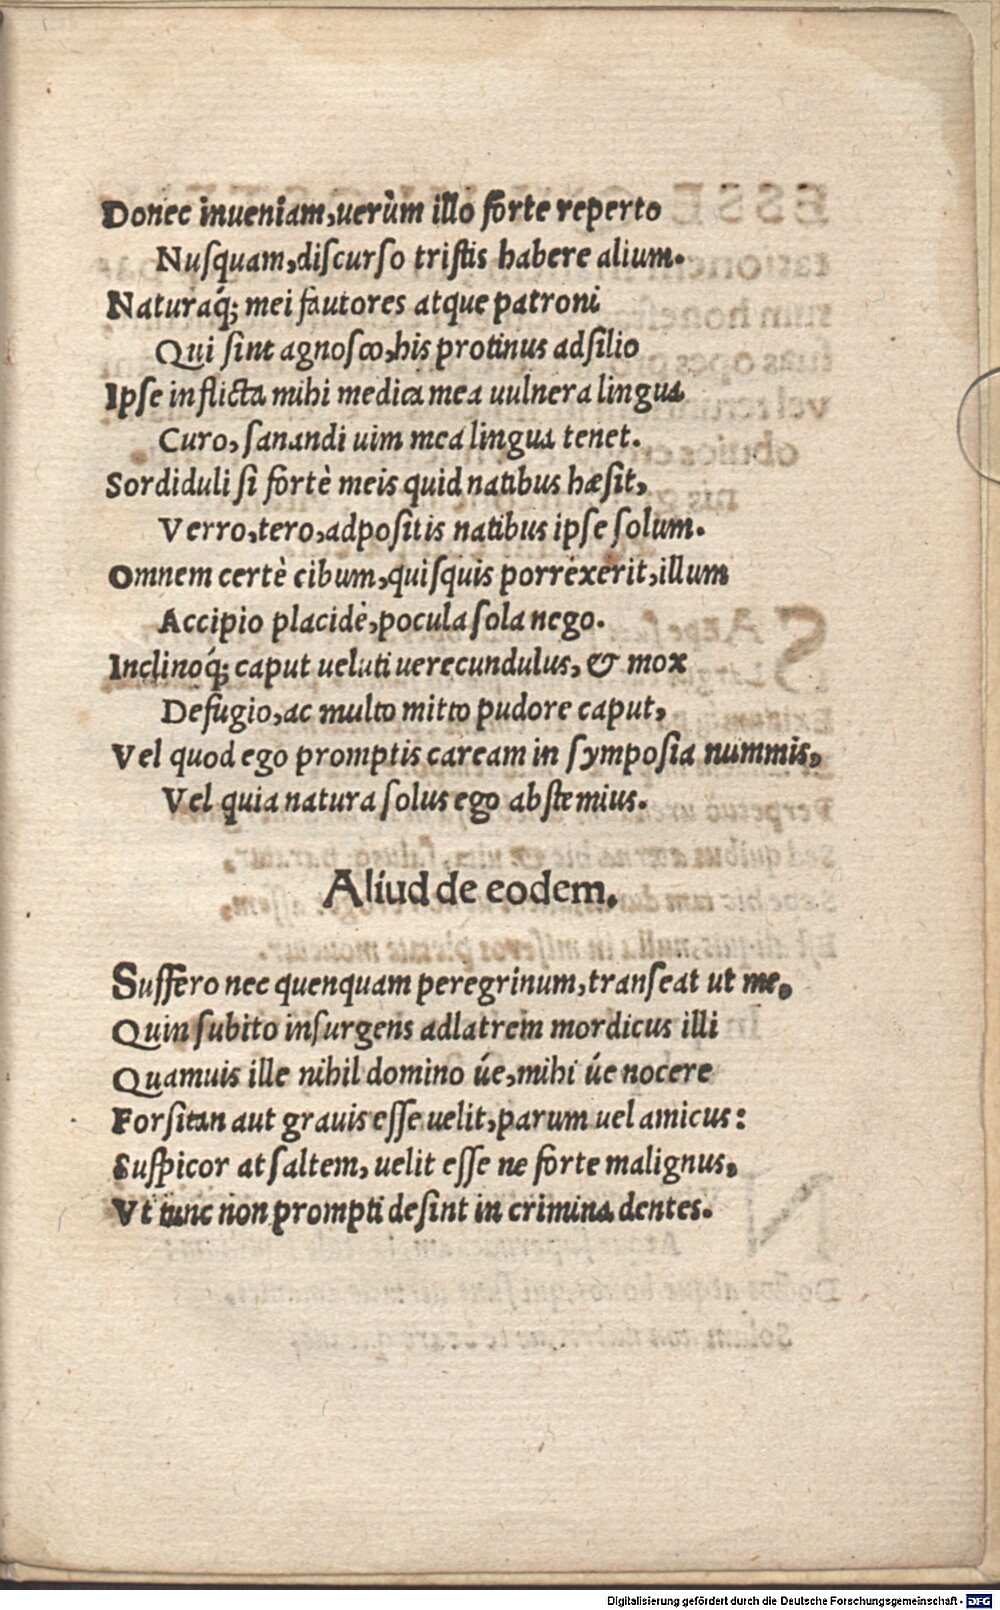 Donec inueniam,uerùm illo forte reperto
Nuſquam,diſcurſo triſtis habere alium.
Naturaq́; mei fautores atque patroni
Qui ſint agnoſco,his protinus adſilio
Ipſe inflicta mihi medica mea uulnera lingua
Curo, ſanandi uim mea lingua tenet.
Sordiduli ſi fortè meis quid natibus hæſit,
Verro,tero,adpoſitis natibus ipſe ſolum.
Omnem certè cibum,quiſquis porrexerit,illum
Accipio placidè,pocula ſola nego.
Inclinoq́; caput ueluti uerecundulus, & mox
Defugio,ac multo mitto pudore caput,
Vel quod ego promptis caream in ſympoſia nummis,
Vel quia natura ſolus ego abſtemius.
Aliud de eodem.
Suffero nec quenquam peregrinum,tranſeat ut me.
Quin ſubito inſurgens adlatrem mordicus illi
Quamuis ille nihil domino úe,mihi úe nocere
Forſitan aut grauis eſſe uelit,parum uel amicus:
Suſpicor at ſaltem, uelit eſſe ne forte malignus,
Vt tunc non prompti deſint in crimina dentes.
Digitalisierung gefördert durch die Deutsche Forschungsgemeinschaft - DFG